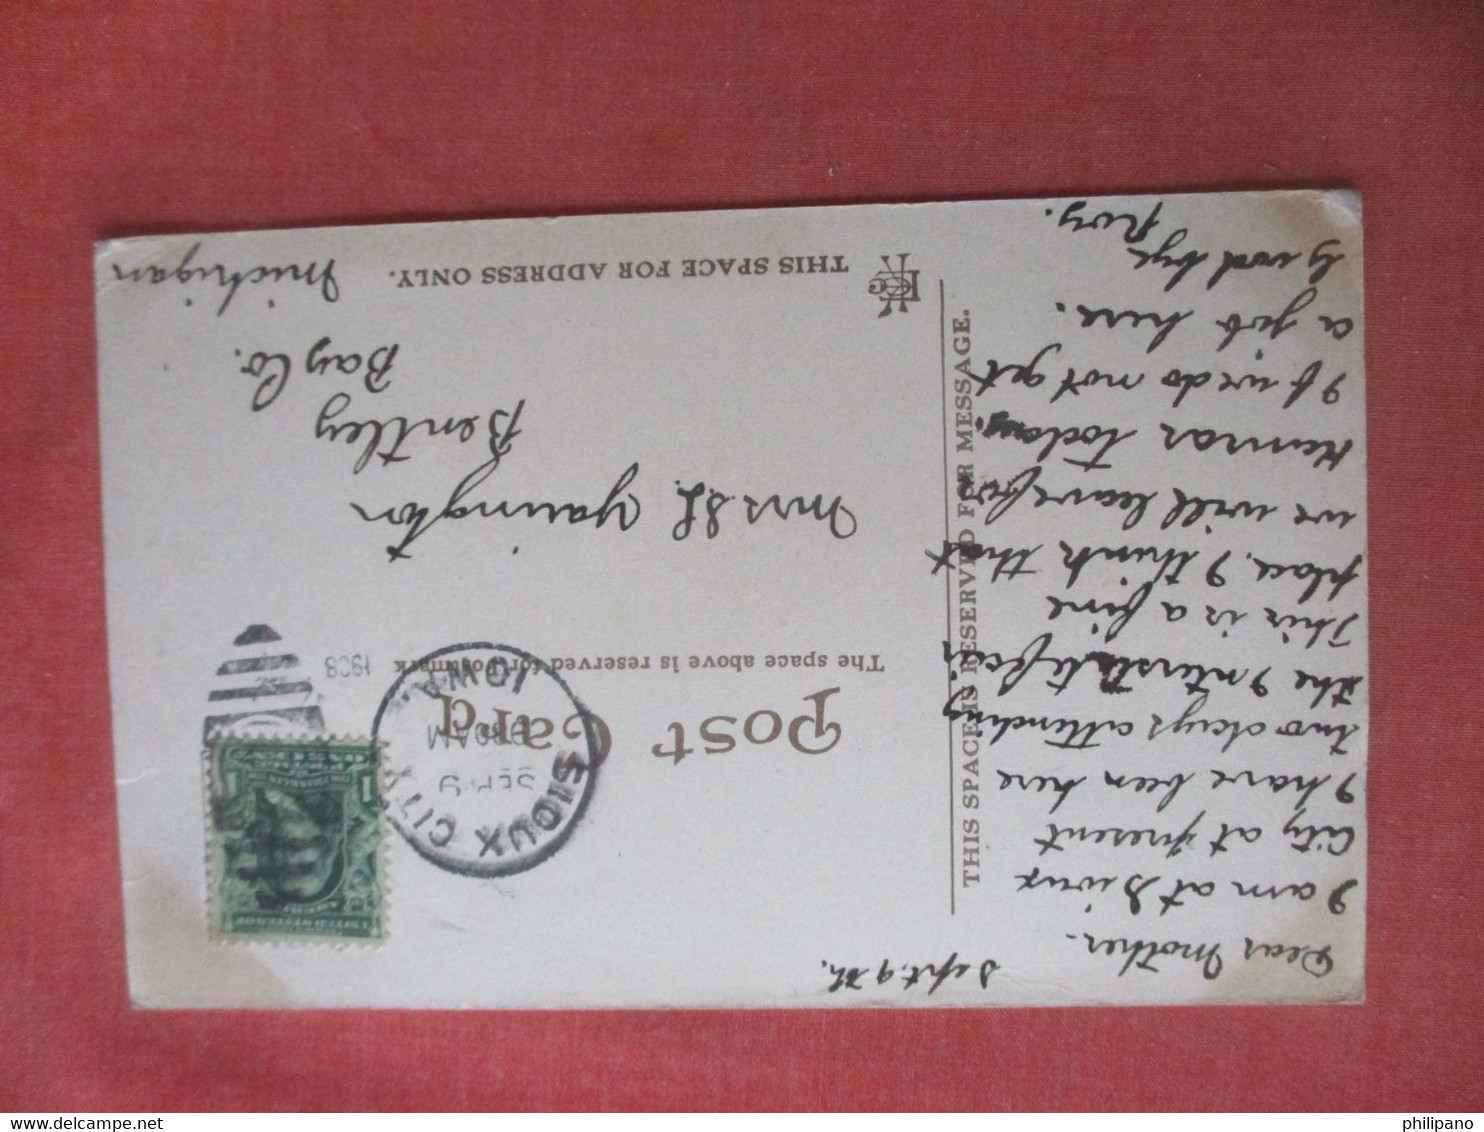 Sept. 9th.
Dear Mother.
I am at Sioux
City at present
I have been here
two days attending
the Interstate fair
This is a fine
place, I think that
we will leave for
today.
If we do not get
a job here.
Good bye
Roy.
THIS SPACE IS RESERVED FOR MESSAGE.
Post Card
The space above is reserved for Postmark
SIOUX CITY
SEP 9
930AM
1908
IOWA
Mrs
Yarington
Bentley
Bay Co.
Michigan
THIS SPACE FOR ADDRESS ONLY.
philipano